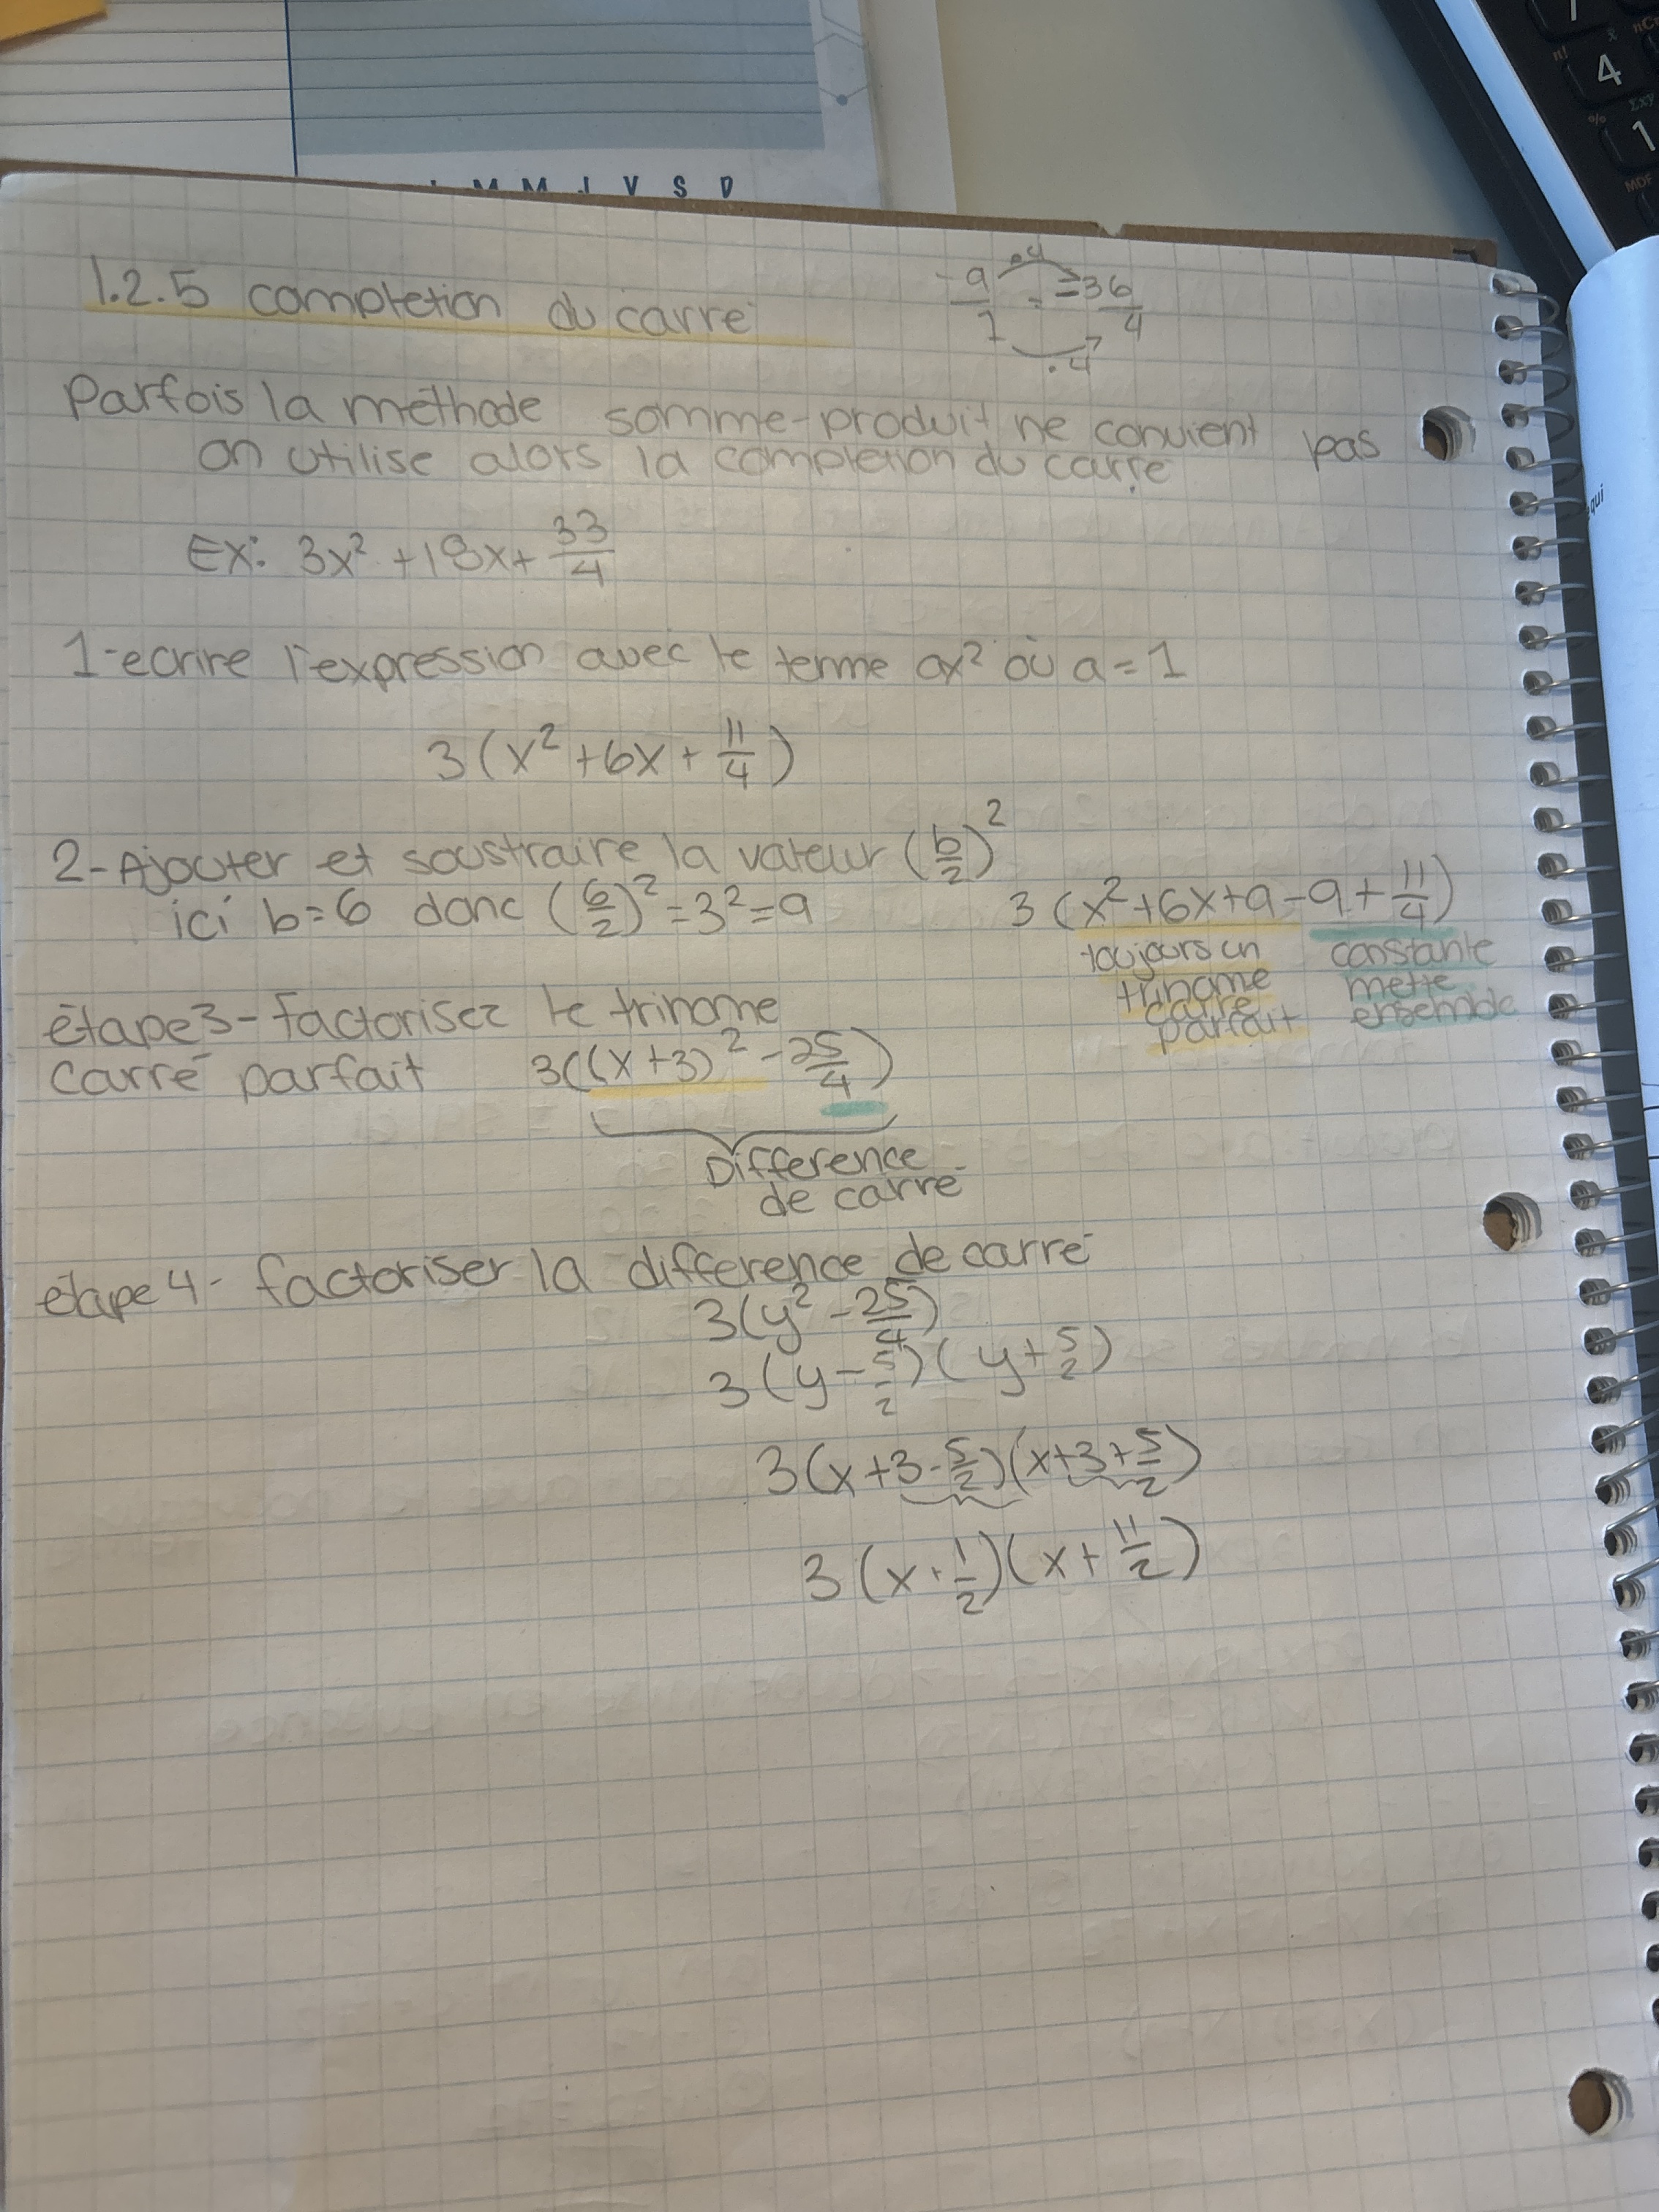 L M M J V S D
1.2.5 completion du carré
-9/1 = -36/4
.4
.4
Parfois la méthode somme-produit ne convient pas
on utilise alors la completion du carré
Ex: 3x² + 18x + 33/4
1-ecrire l'expression avec le terme ax² où a = 1
3(x² + 6x + 11/4)
2-Ajouter et soustraire la valeur (b/2)²
ici b = 6 donc (6/2)² = 3² = 9
3(x² + 6x + 9 - 9 + 11/4)
toujours un
trinome
carre
parfait
constante
mette
ensemble
étape 3- factorisez le trinome
carré parfait 3((x + 3)² - 25/4)
Difference
de carré
étape 4- factoriser la difference de carré
3(y² - 25/4)
3(y - 5/2)(y + 5/2)
3(x + 3 - 5/2)(x + 3 + 5/2)
3(x + 1/2)(x + 11/2)
4
1
n!
%
Σxy
MDF
qui